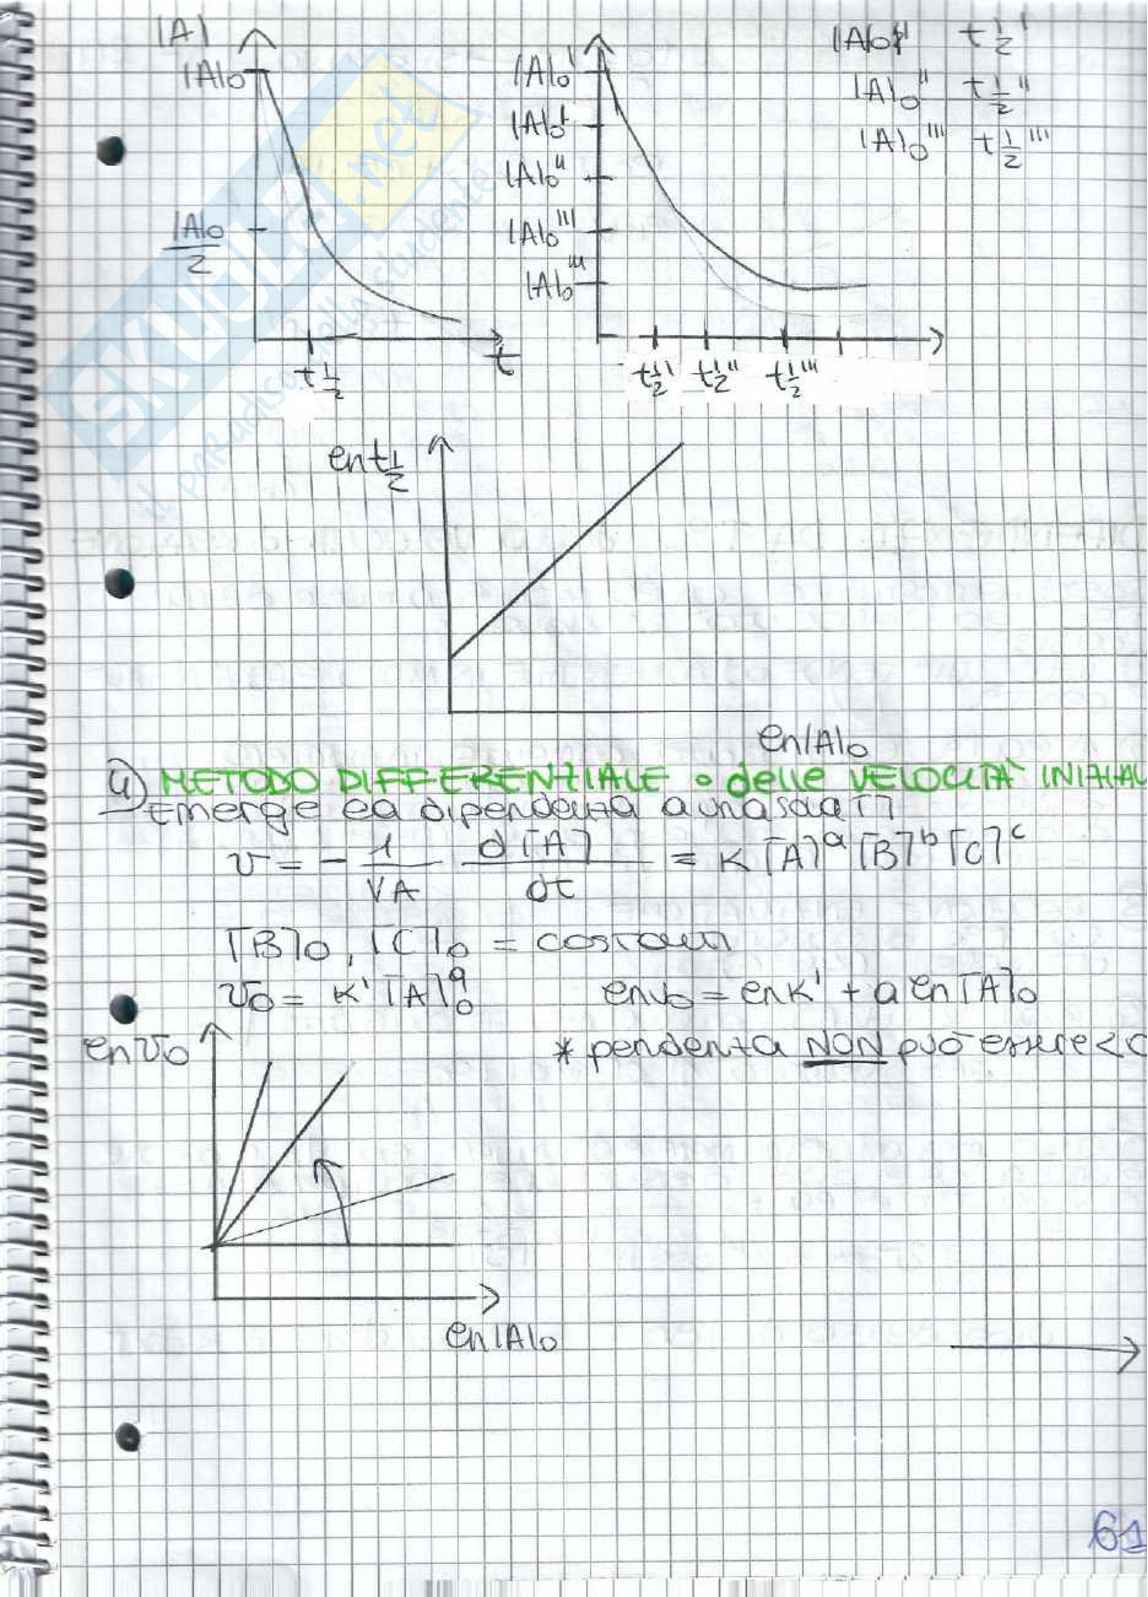 |A|
|A|₀
|A|₀/2
t½
t
|A|₀'
|A|₀'
|A|₀''
|A|₀'''
|A|₀'''
t½' t½'' t½'''
|A|₀' t½'
|A|₀'' t½''
|A|₀''' t½'''
SKUOLA.net
il paradiso dello studente
ln t½
ln|A|₀
4) METODO DIFFERENZIALE o delle VELOCITÀ INIZIAL
Emerge la dipendenza a una sola []
v = - 1/νA d[A]/dt = K [A]ᵃ [B]ᵇ [C]ᶜ
[B]₀, [C]₀ = costanti
v₀ = K' [A]₀ᵃ ln v₀ = ln K' + a ln [A]₀
* pendenza NON può essere < 0
ln v₀
ln|A|₀
61